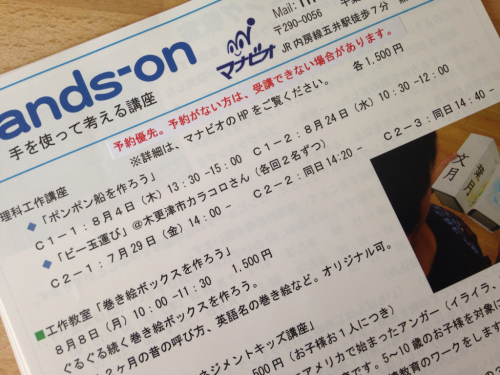 Mail:
〒290-0056 千葉
JR内房線五井駅徒歩7分
ands-on
マナビオ
手を使って考える講座
予約優先。予約がない方は、受講できない場合があります。
※詳細は、マナビオのHPをご覧ください。 各1,500円
理科工作講座
◆「ポンポン船を作ろう」
C1-1:8月4日(木)13:30-15:00 C1-2:8月24日(水)10:30-12:00
◆「ビー玉運び」@木更津市カラコロさん(各回2名ずつ)
C2-1:7月29日(金)14:00- C2-2:同日14:20- C2-3:同日14:40-
■工作教室「巻き絵ボックスを作ろう」
8月8日(月)10:00-11:30 1,500円
ぐるぐる続く巻き絵ボックスを作ろう。
2ヶ月の昔の呼び方、英語名の巻き絵など。オリジナル可。
文月
葉月
ネジメントキッズ講座」
500円(お子様お1人につき)
アメリカで始まったアンガー(イライラ、
です。5~10歳のお子様を対象に
教育のワークをします